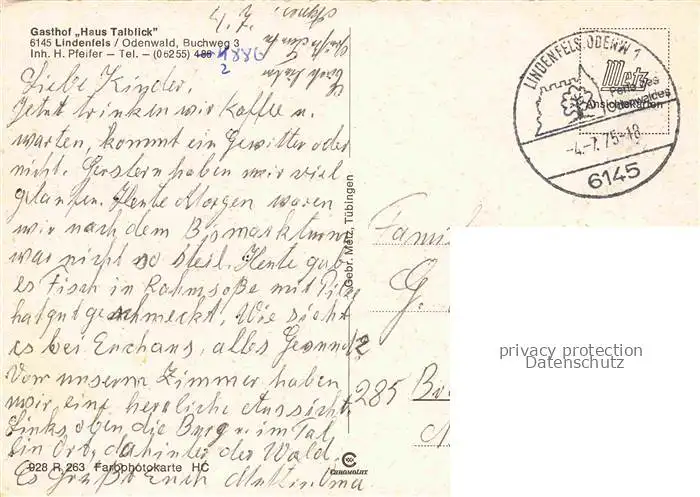 Gasthof „Haus Talblick"
6145 Lindenfels / Odenwald, Buchweg 3
Inh. H. Pfeifer – Tel. – (06255) 486
1886
2
4.7.
Liebe Kinder.
Jetzt trinken wir Kaffee u.
warten, kommt ein Gewitter oder
nicht. Gerstern haben wir viel
gelaufen. Heute Morgen waren
wir nach dem Bismarkturm
war nicht so steil. Heute gab
es Fisch in Rahmsoße mit Pilze
hat gut geschmeckt. Wie sieht
es bei Euch aus, alles Gesund?
Vom unserm Zimmer haben
wir eine herrliche Aussicht
Links oben die Burg u. im Tal
Ein Ort, dahinter der Wald.
Es Grüßt Euch Mutti Oma
928 R 263 Farbphotokarte HC
CHROMOLUX
Gebr. Metz, Tübingen
LINDENFELS, ODENW 1
Perle des
Odenwaldes
-4.-7.75-18
6145
Metz
Ansichtskarten
Famil
G.
285
privacy protection
Datenschutz